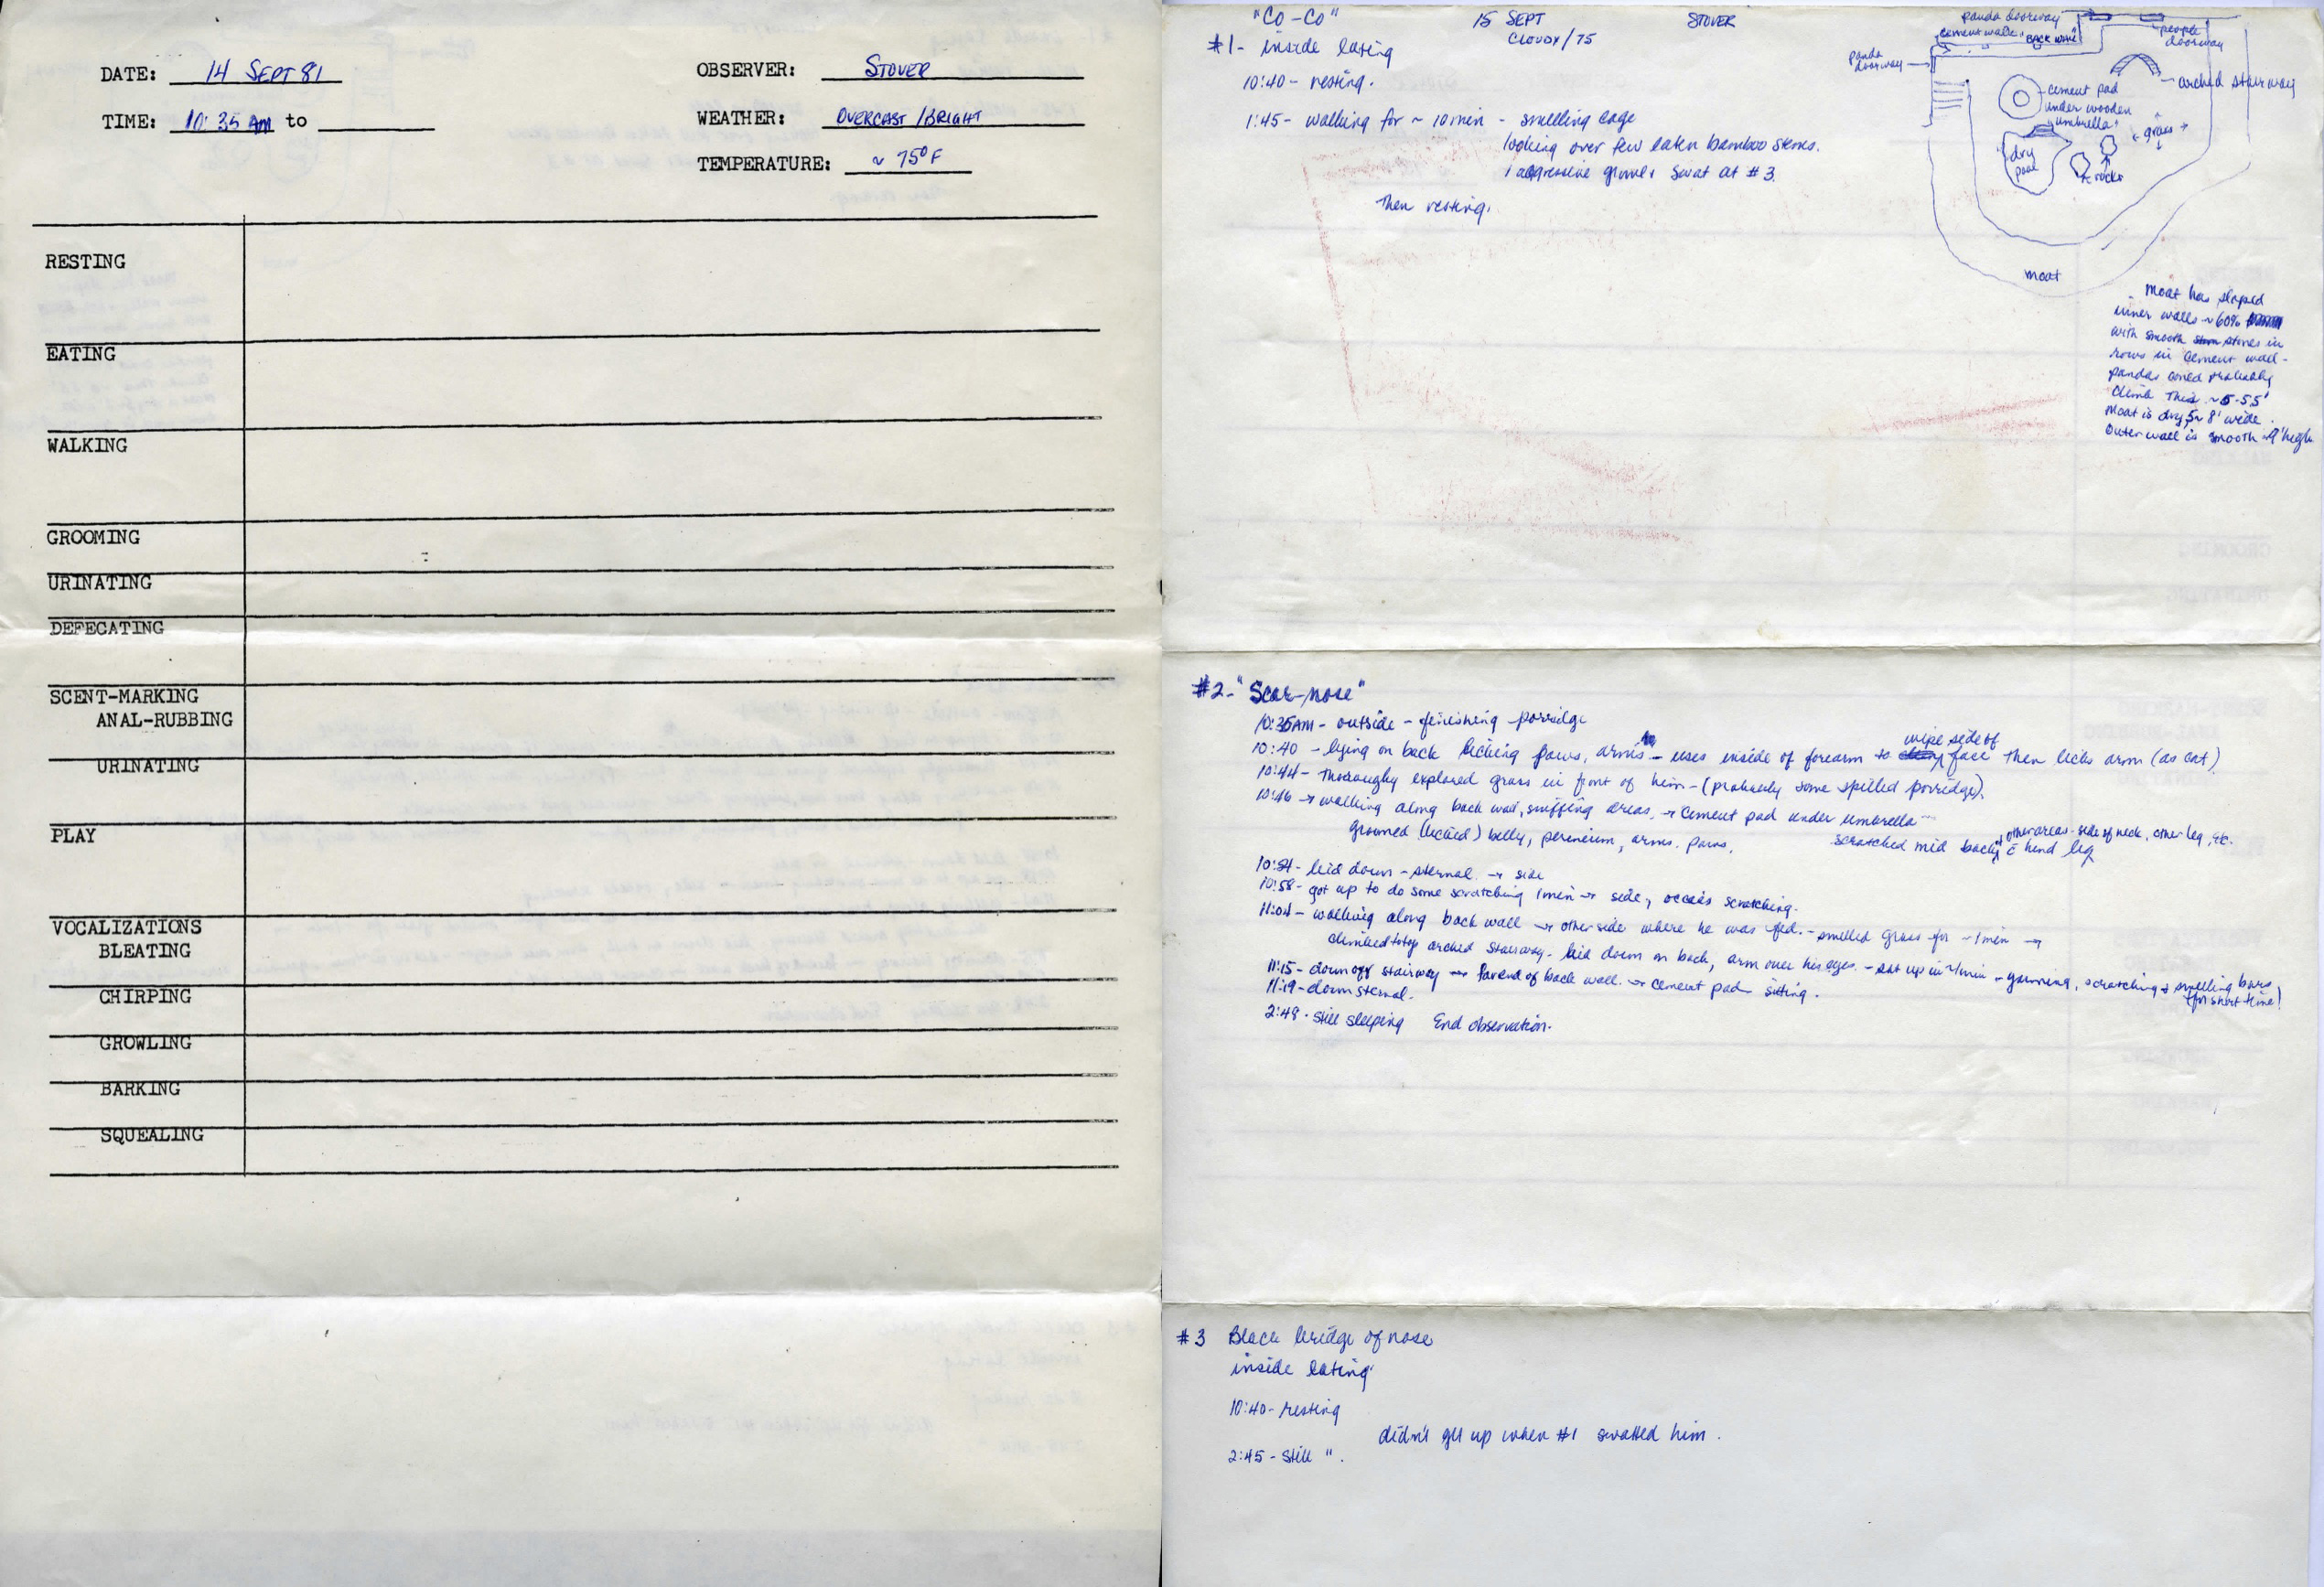 DATE: 14 SEPT 81
TIME: 10:35 AM to
OBSERVER: STOVER
WEATHER: OVERCAST/BRIGHT
TEMPERATURE: ~ 75° F
RESTING
EATING
WALKING
GROOMING
URINATING
DEFECATING
SCENT-MARKING
ANAL-RUBBING
URINATING
PLAY
VOCALIZATIONS
BLEATING
CHIRPING
GROWLING
BARKING
SQUEALING
"CO-CO" 15 SEPT STOVER
CLOUDY/75
#1- inside eating
10:40- resting.
1:45- walking for ~ 10min - smelling cage
looking over few eaten bamboo stems.
1 aggressive growl & swat at #3.
Then resting.
panda doorway
cement walk
BACK WALL
people doorway
panda doorway
arched stairway
cement pad
under wooden
"umbrella"
grass
dry pool
rocks
moat
- Moat has sloped
inner walls ~60%
with smooth stones in
rows in cement wall-
pandas could probably
climb this. ~5-5.5'
Moat is dry, ~ 8' wide.
Outer wall is smooth ~9' high
#2-"Scar-nose"
10:35AM - outside - finishing porridge
10:40 - lying on back licking paws, arms - uses inside of forearm to wipe side of face then licks arm (as cat).
10:44 - Thoroughy explored grass in front of him - (probably some spilled porridge).
10:46 → walking along back wall, sniffing areas, → cement pad under umbrella
groomed (licked) belly, perineum, arms, paws, scratched mid back, c̄ hind leg
other areas - side of neck, other leg, etc.
10:54- laid down - sternal → side
10:58- got up to do some scratching 1min → side, occas scratching.
11:04 - walking along back wall → other side where he was fed. - smelled grass for ~1min →
climbed to top arched stairway - laid down on back, arm over his eyes. - sat up in ~1min - yawning, scratching & smelling bars (for short time)
11:15 - down off stairway → far end of back wall. → cement pad - sitting.
11:19 - down sternal.
2:48 - still sleeping End observation.
#3 Black bridge of nose
inside eating
10:40- resting
didn't get up when #1 swatted him.
2:45 - still ".